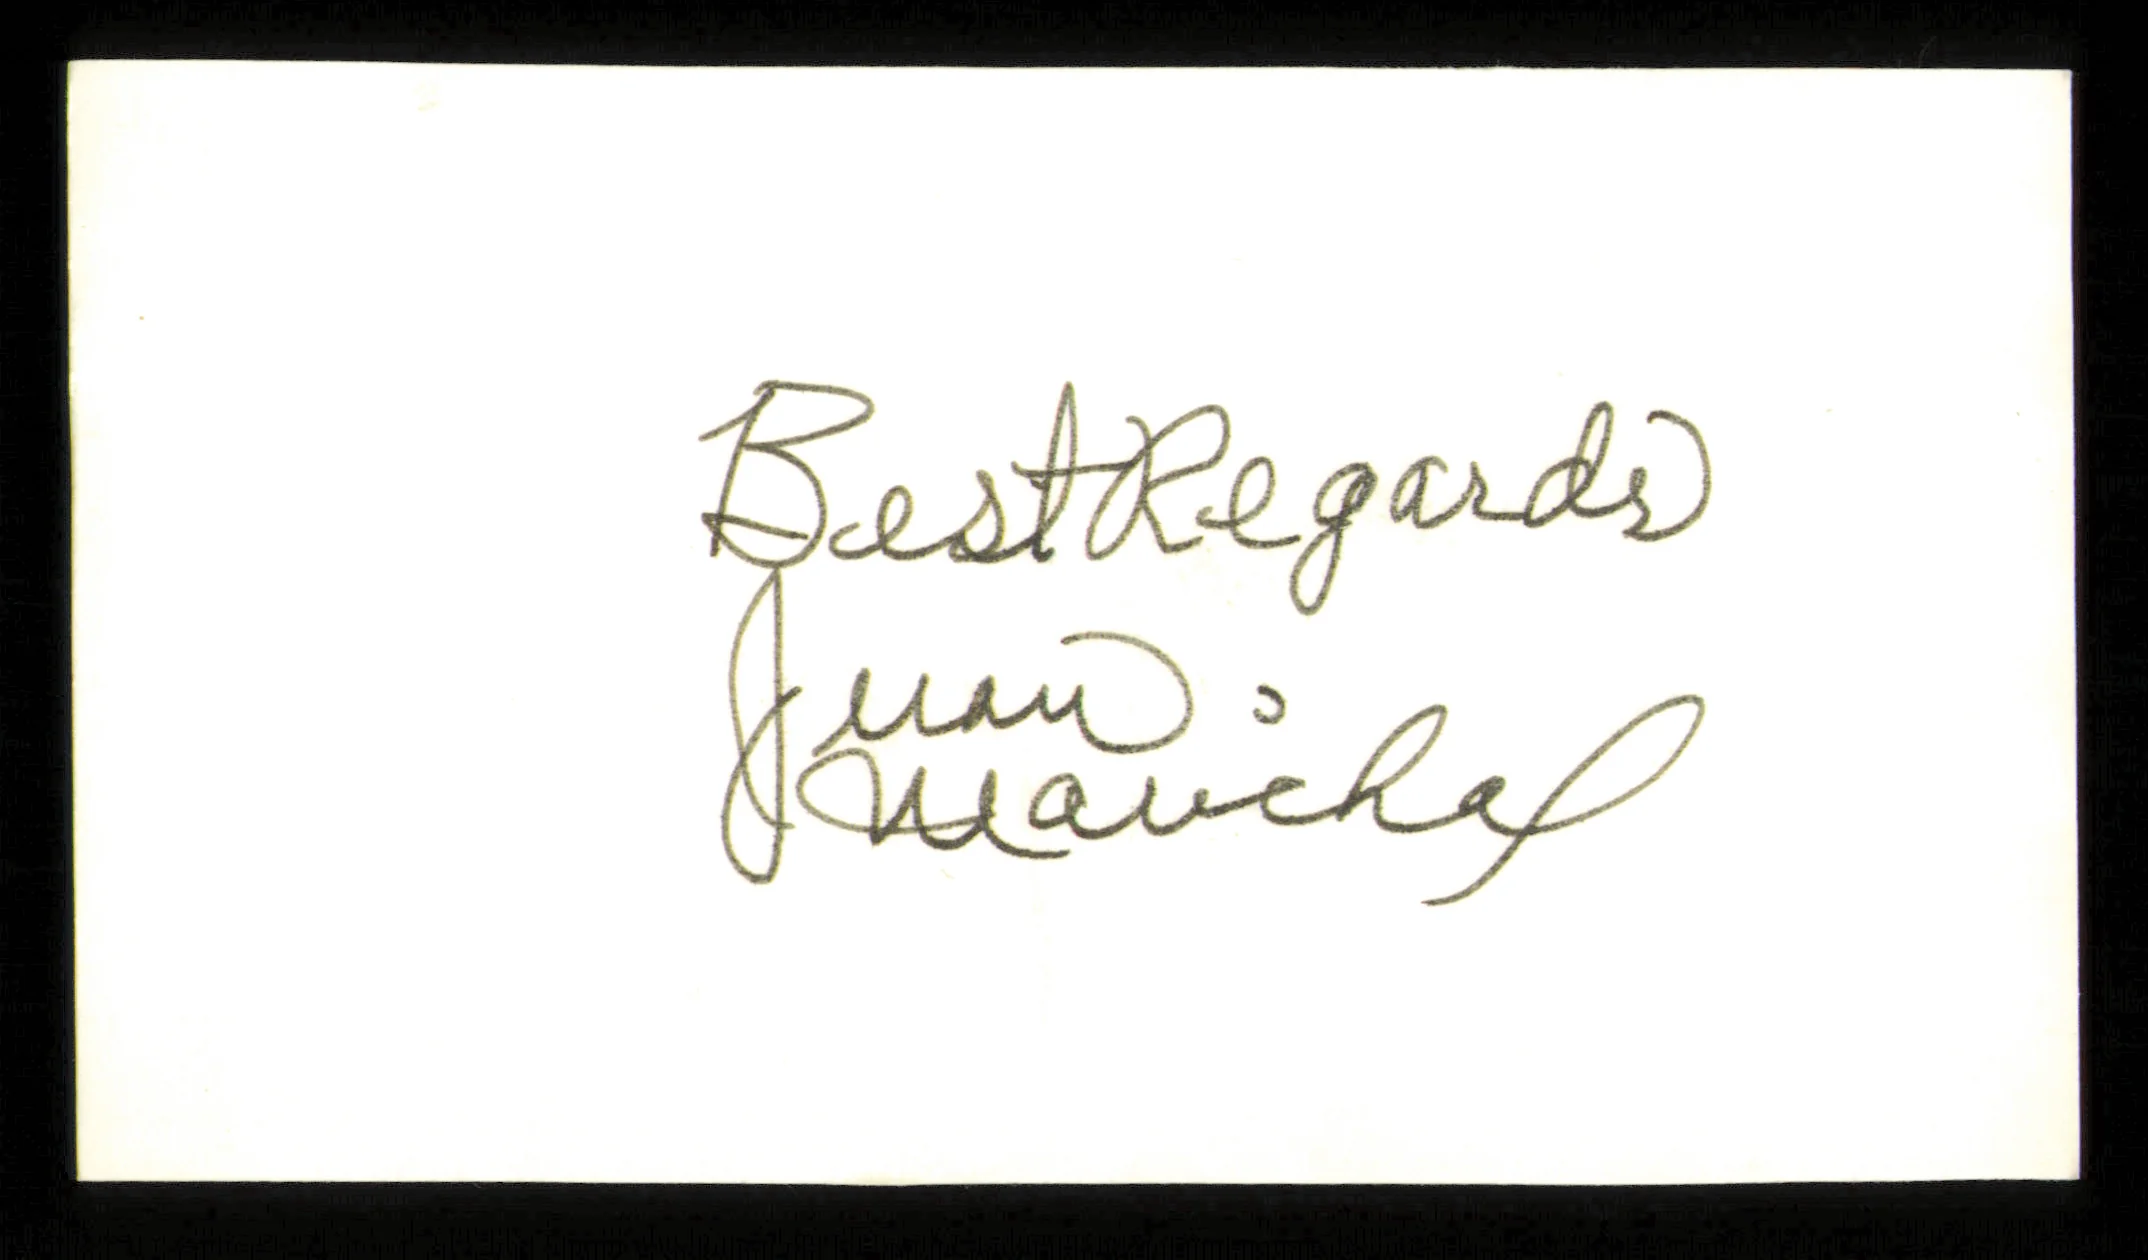 Best Regards
Juan
Marichal